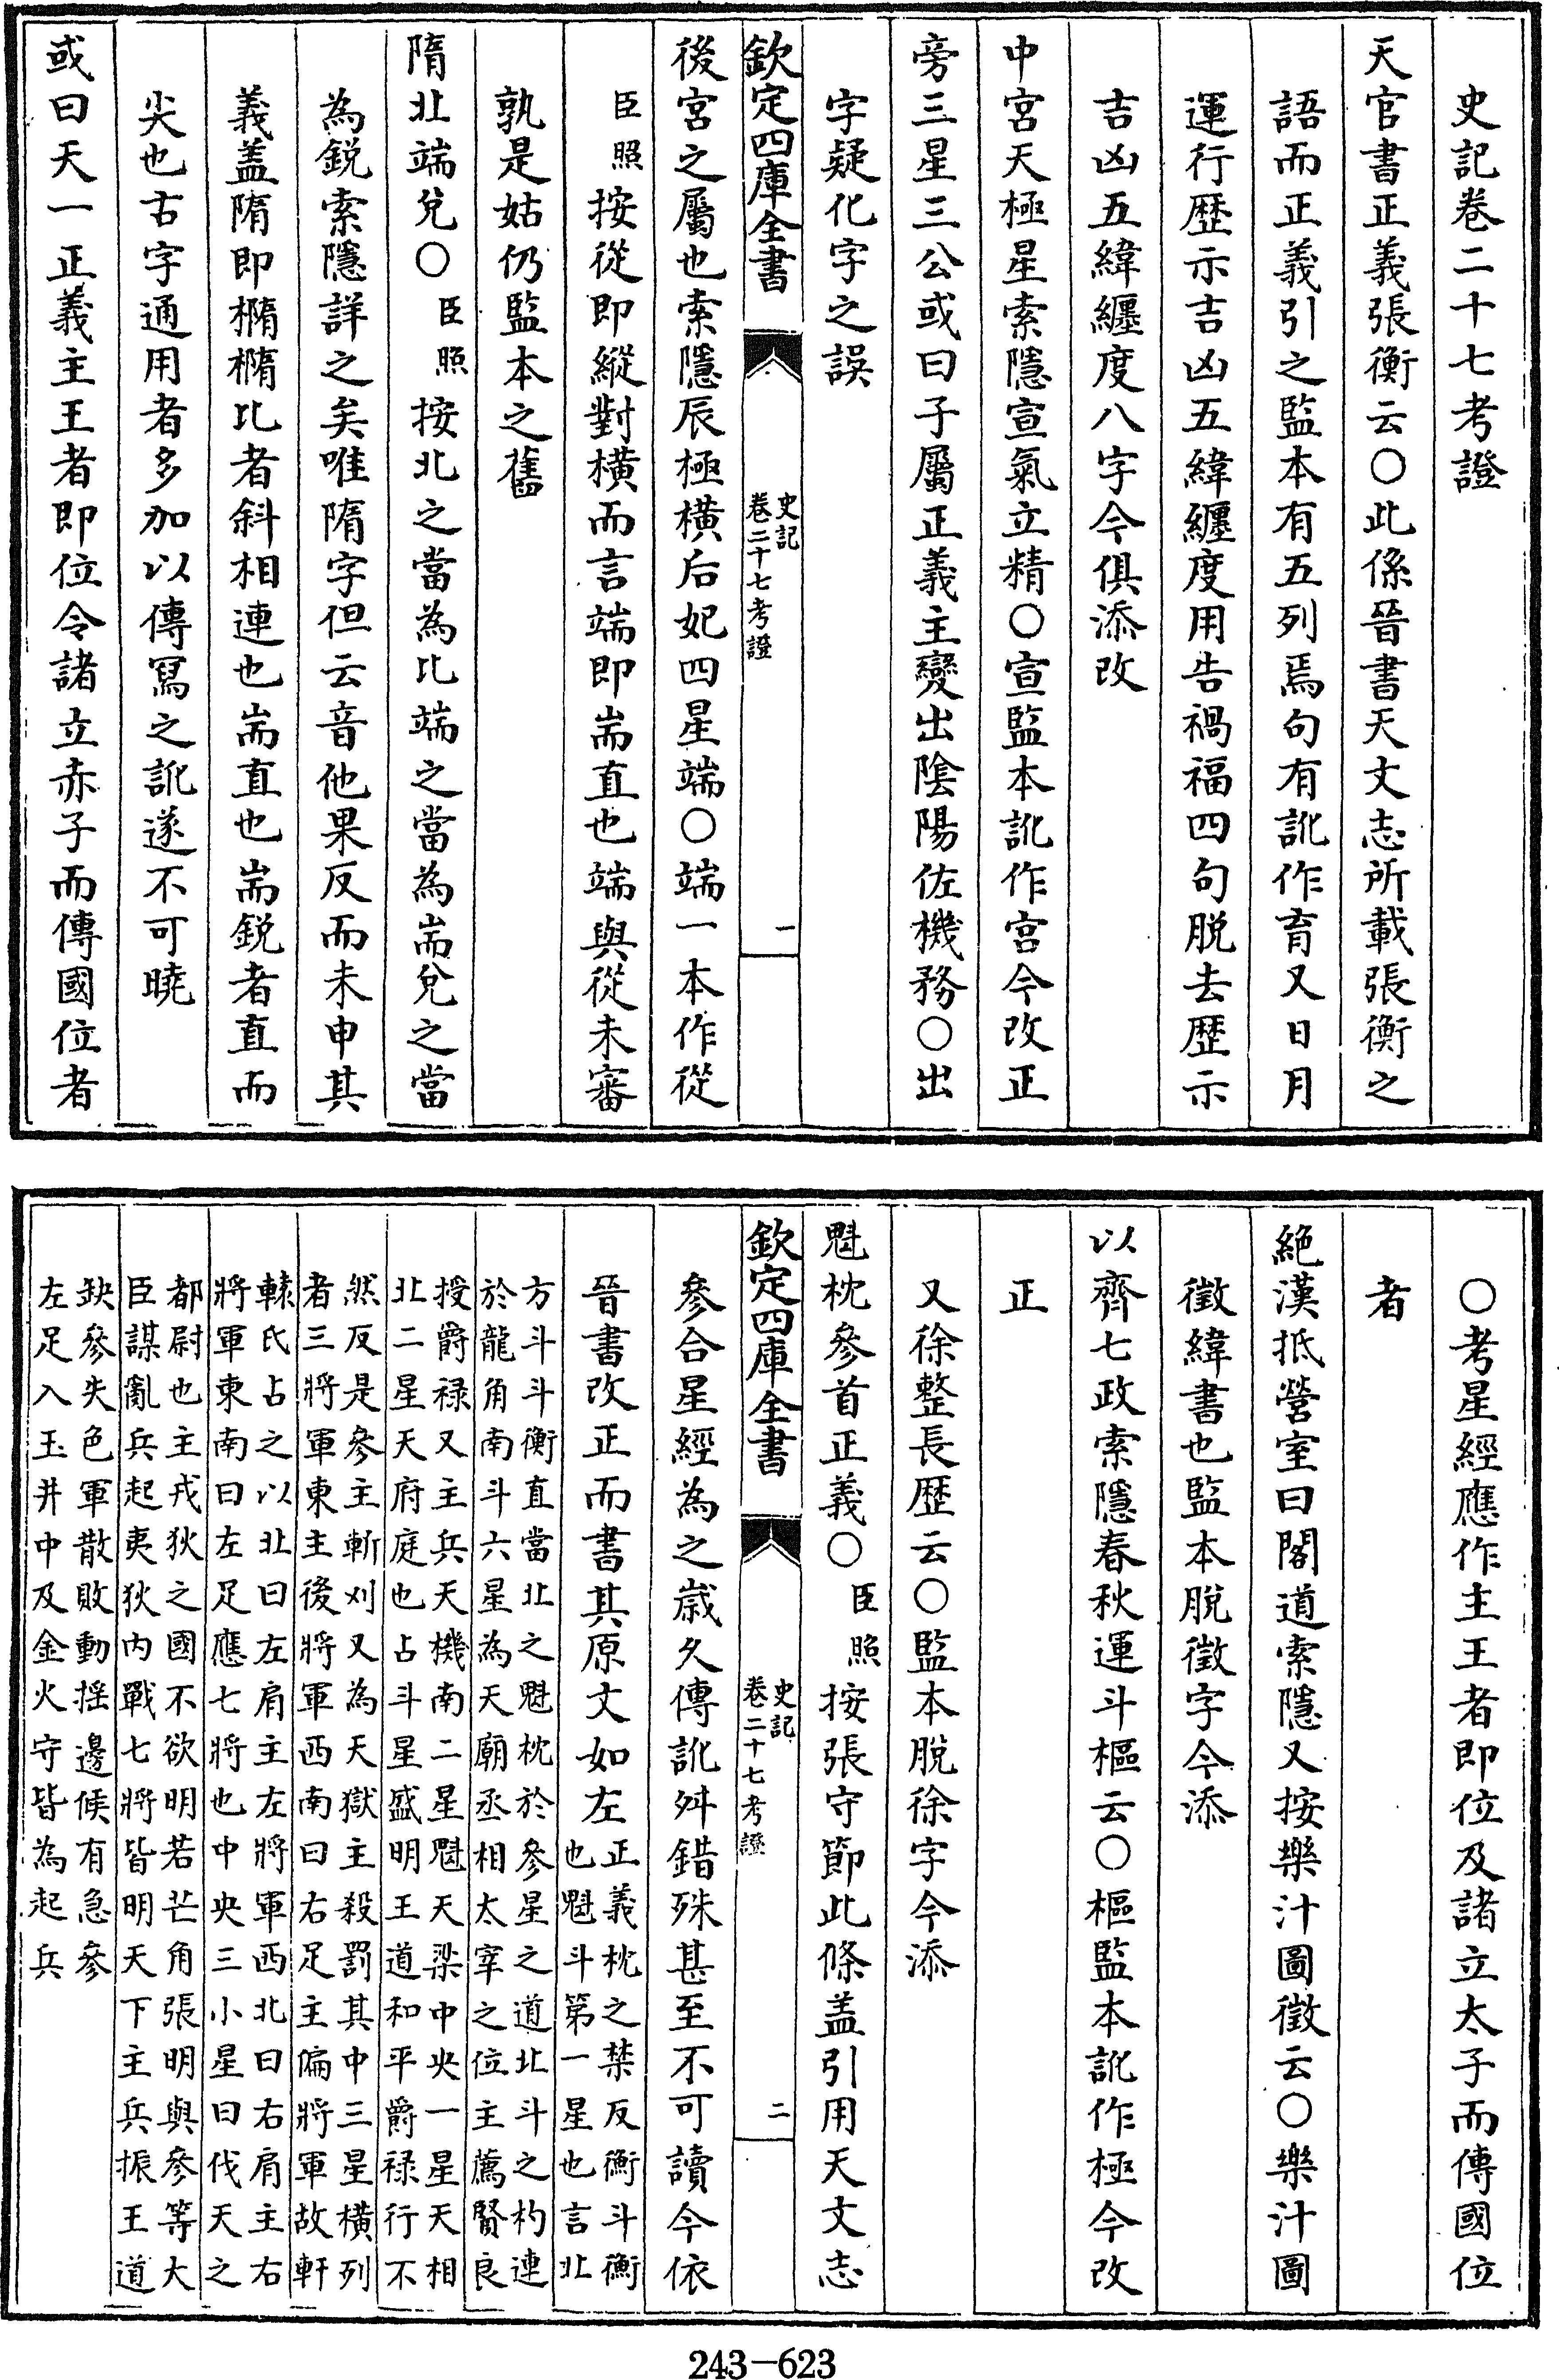 史記卷二十七考證
天官書正義張衡云○此係晉書天文志所載張衡之
語而正義引之監本有五列焉句有訛作育又日月
運行歷示吉凶五緯纒度用告禍福四句脱去歴示
吉凶五緯纒度八字今俱添改
中宮天極星索隱宣氣立精○宣監本訛作宮今改正
旁三星三公或曰子屬正義主變出陰陽佐機務○出
字疑化字之誤
欽定四庫全書
史記
卷二十七考證
一
後宮之屬也索隱辰極橫后妃四星端○端一本作從
臣照按從即縱對橫而言端即耑直也端與從未審
孰是姑仍監本之舊
隋北端兌○臣照按北之當為比端之當為耑兌之當
為鋭索隱詳之矣唯隋字但云音他果反而未申其
義盖隋即橢橢比者斜相連也耑直也耑鋭者直而
尖也古字通用者多加以傳寫之訛遂不可曉
或曰天一正義主王者即位令諸立赤子而傳國位者
○考星經應作主王者即位及諸立太子而傳國位
者
絕漢抵營室曰閣道索隱又按樂汁圖徵云○樂汁圖
徵緯書也監本脫徵字今添
以齊七政索隱春秋運斗樞云○樞監本訛作極今改
正
又徐整長歴云○監本脫徐字今添
魁枕參首正義○臣照按張守節此條盖引用天文志
欽定四庫全書
史記
卷二十七考證
二
參合星經為之歳久傳訛舛錯殊甚至不可讀今依
晉書改正而書其原文如左正義枕之禁反衡斗衡
也魁斗第一星也言北
方斗斗衡直當北之魁枕於參星之道北斗之杓連
於龍角南斗六星為天廟丞相太宰之位主薦賢良
授爵禄又主兵天機南二星魁天梁中央一星天相
北二星天府庭也占斗星盛明王道和平爵禄行不
然反是參主斬刈又為天獄主殺罰其中三星橫列
者三將軍東主後將軍西南曰右足主偏將軍故軒
轅氏占之以北曰左肩主左將軍西北曰右肩主右
將軍東南曰左足應七將也中央三小星曰伐天之
都尉也主戎狄之國不欲明若芒角張明與參等大
臣謀亂兵起夷狄内戰七將皆明天下主兵振王道
缺參失色軍散敗動揺邊候有急參
左足入玉井中及金火守皆為起兵
243-623